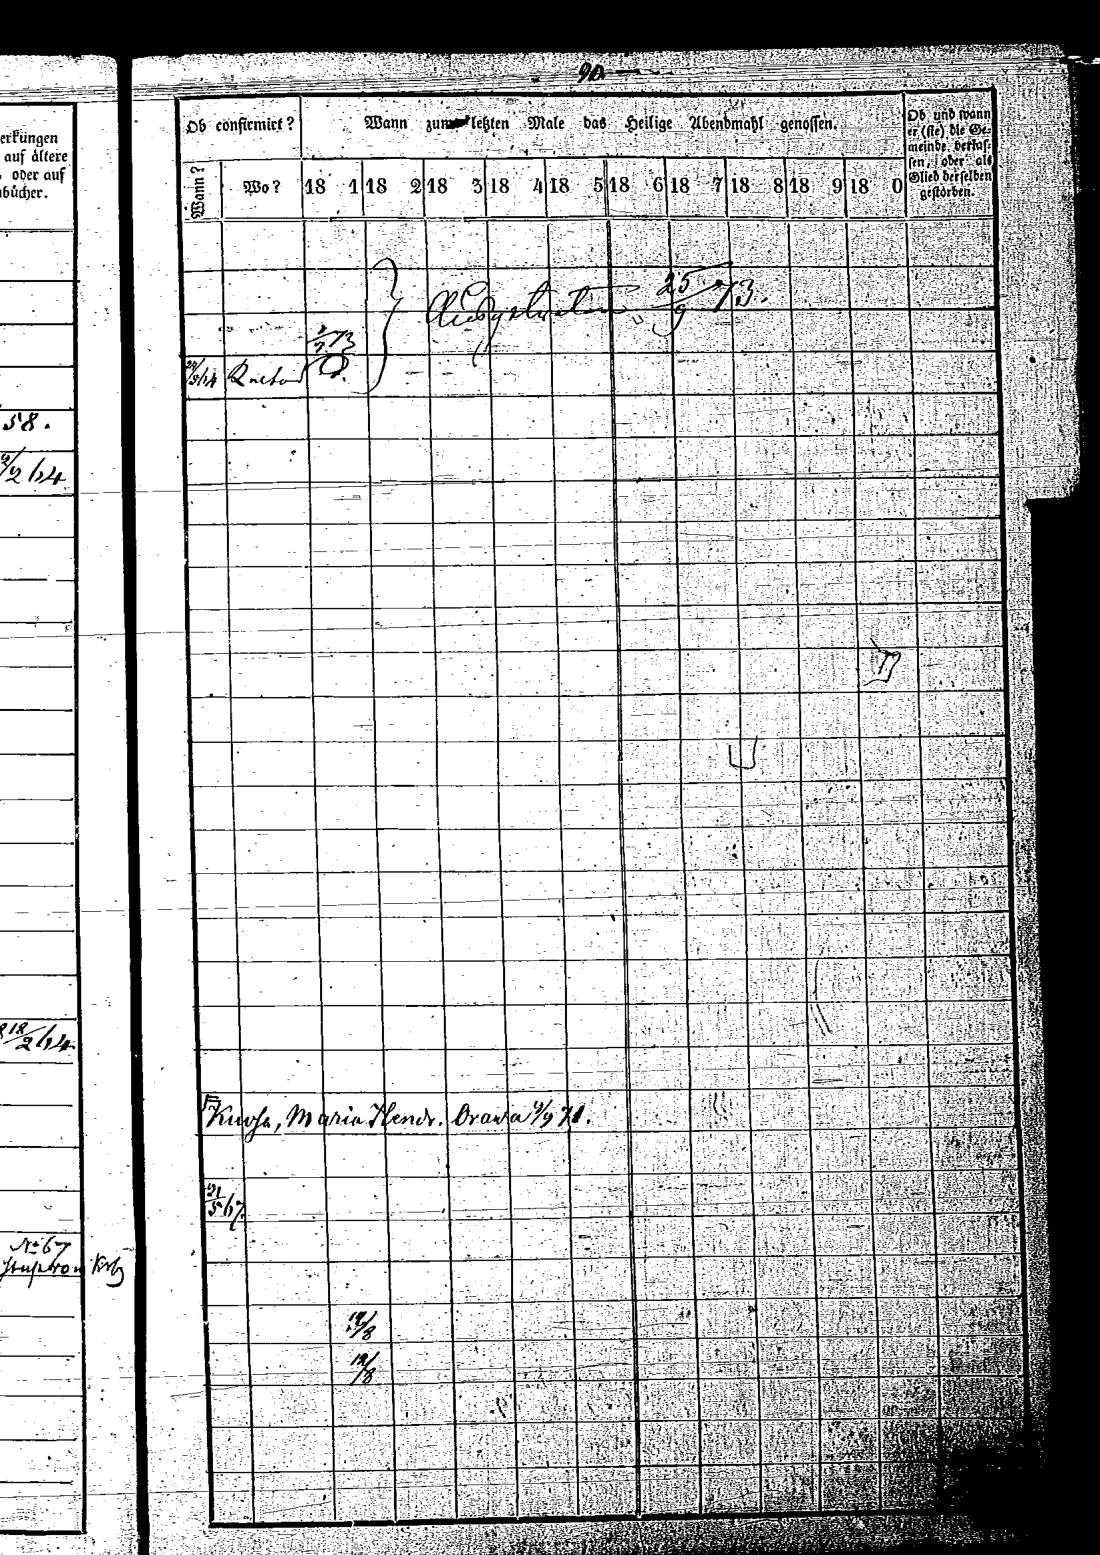 90
erkungen
auf ältere
, oder auf
nbücher.
58.
2/64
18/2 64
No 67
Ob confirmirt?
Wann zum letzten Male das Heilige Abendmahl genossen.
Ob und wann
er (sie) die Ge-
meinde verlas-
sen, oder als
Glied derselben
gestorben.
Wann? Wo? 18 1 18 2 18 3 18 4 18 5 18 6 18 7 18 8 18 9 18 0
25/9 73.
73
64
Maria Hendr. Orawa 4/9 71.
21/5 67.
12/8
12/8